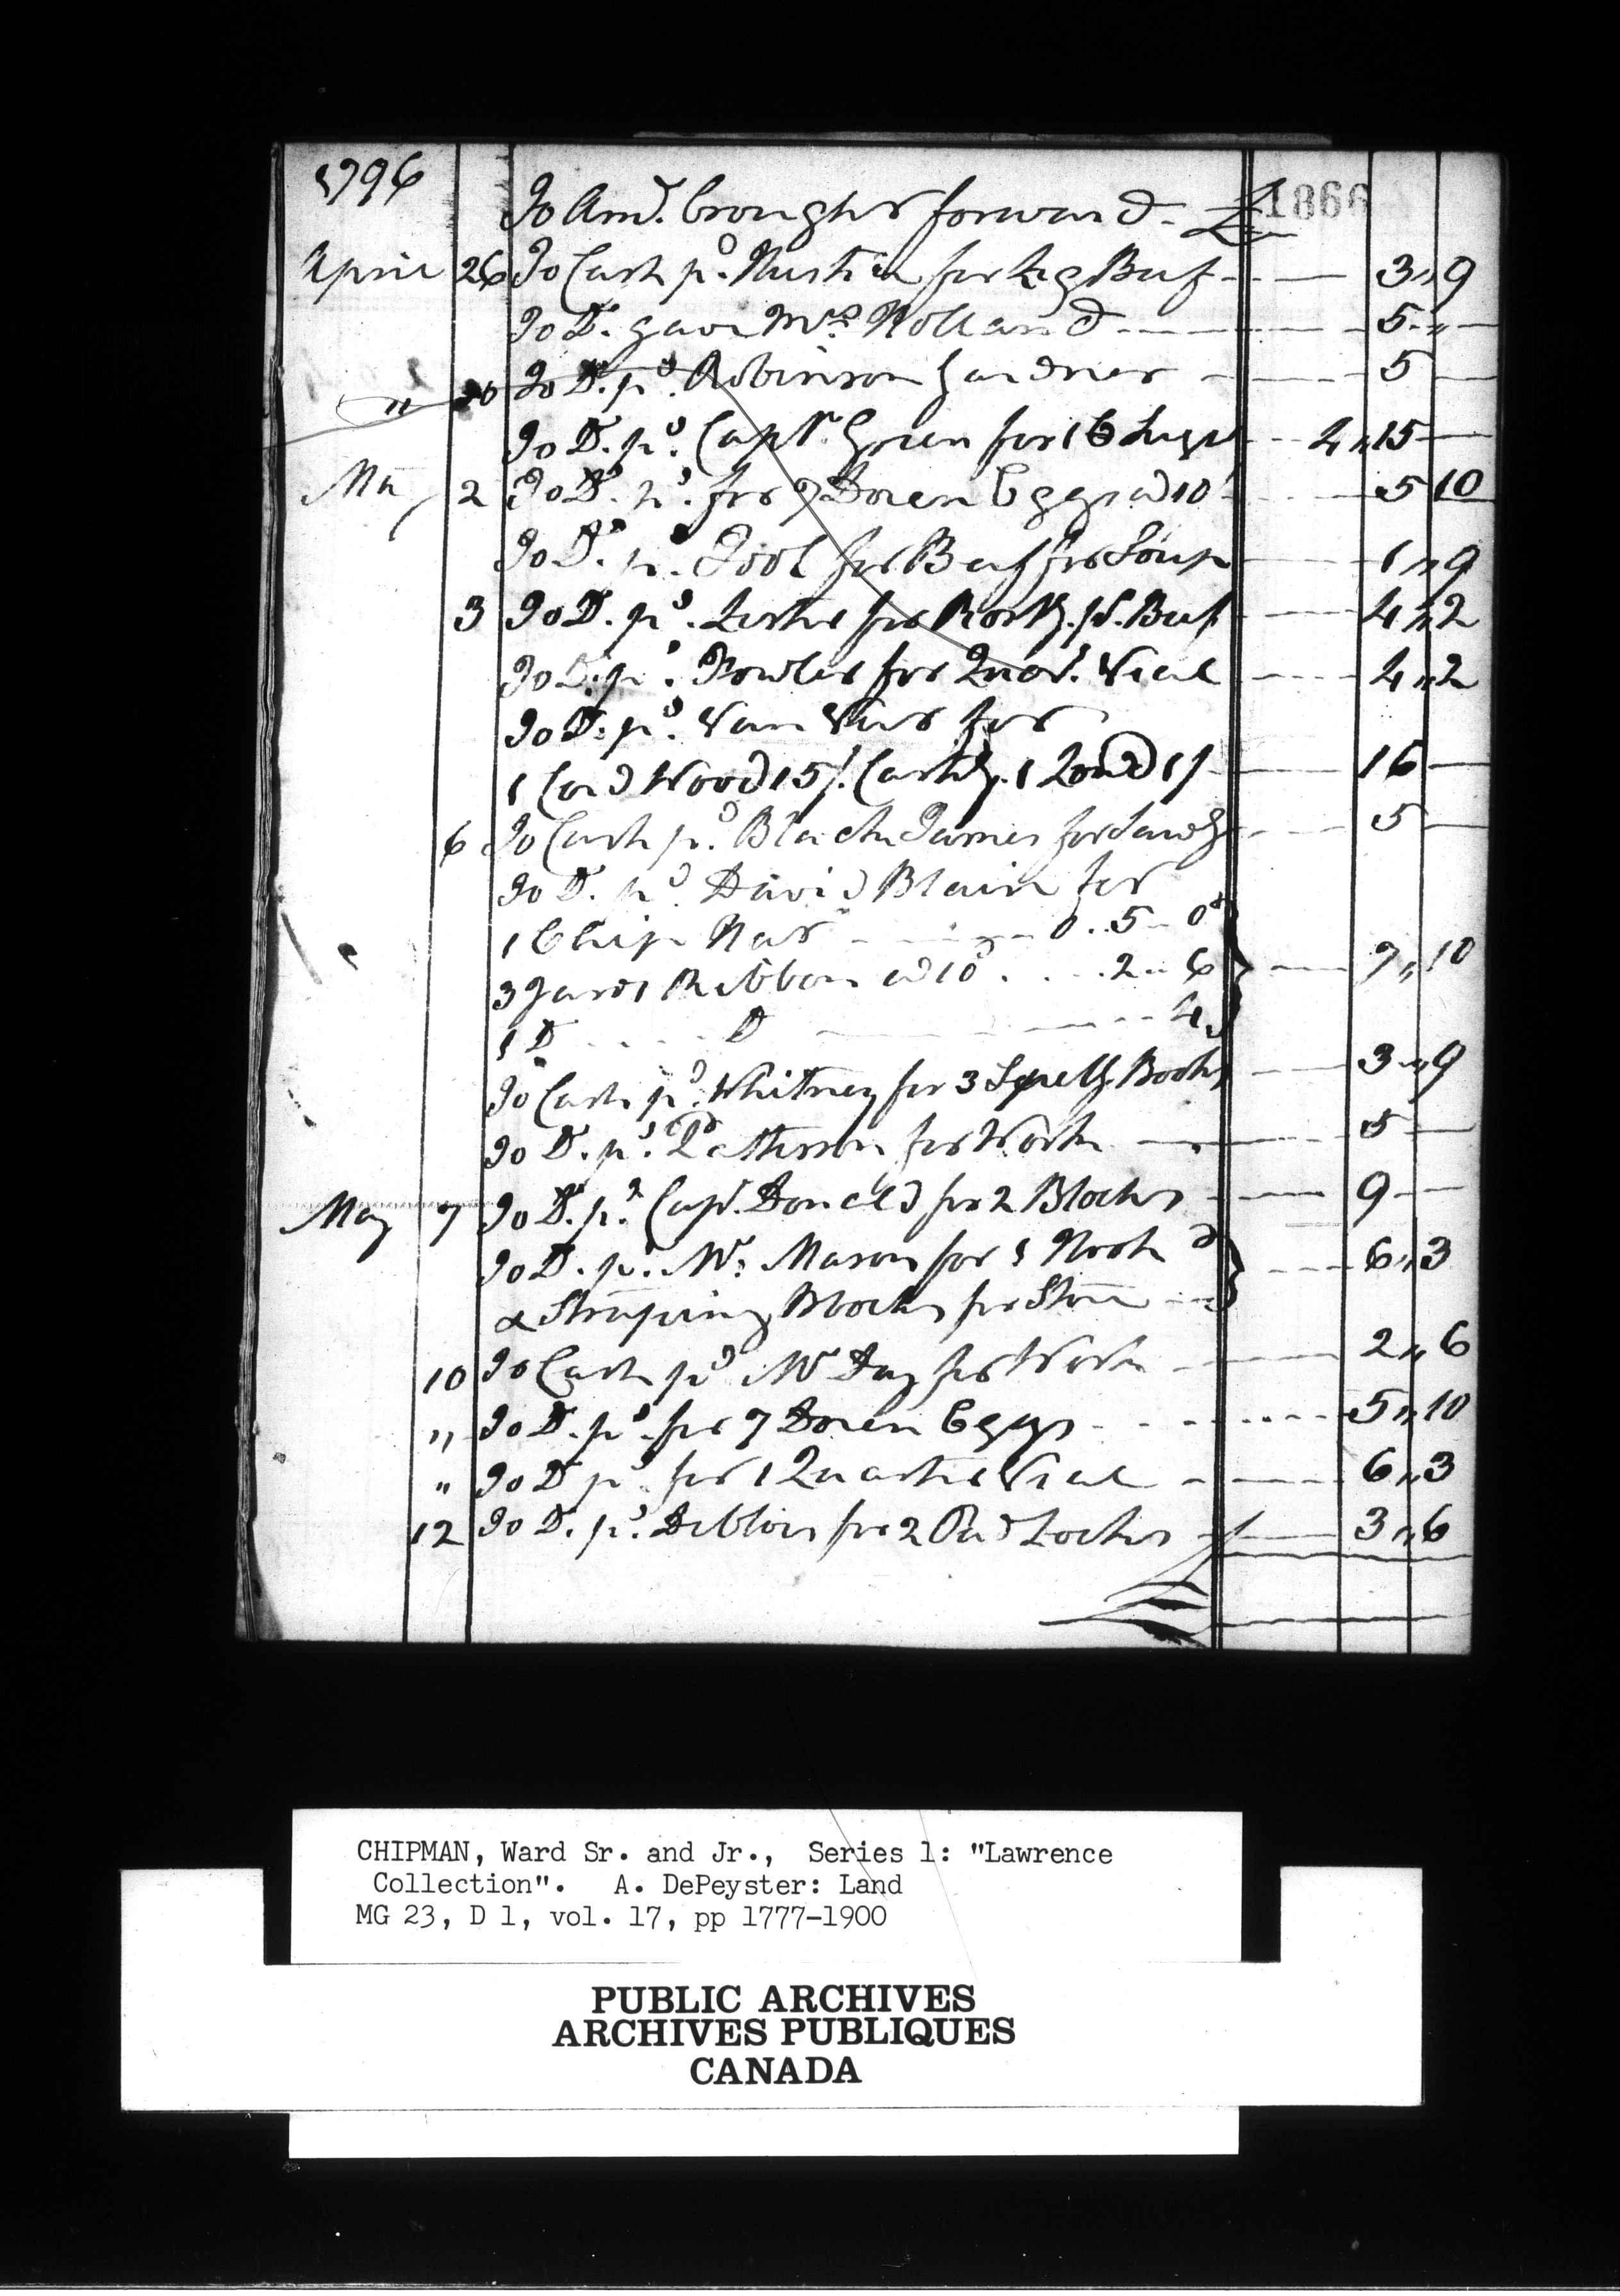 1796
1866
To Amt. brought forward - £
April 26 To Cash pd. Austin for Leg Beef 3 " 9
To Do. gave Mrs. Holland 5 " -
" 30 To Do. pd. Robinson Gardner 5 -
To Do. pd. Capt. Green for 16 4 " 15 -
May 2 To Do. pd. for 7 Dozen Eggs @ 10d 5 10
To Do. pd. Tool for Beef for Soup 1 " 9
3 To Do. pd. Lester for ps. Beef 4 " 2
To Do. pd. Fowler for Quar. Veal 4 " 2
To Do. pd. Van for
1 Cord Wood 15/. Cartg. 1 Load 1/ 16 -
6 To Cash pd. Black James for Sawg 5 -
To Do. pd. David Blair for
1 Chip Hat 0 .. 5 - 0
3 Yards Ribbon @ 10d 2 .. 6 } 7 " 10
1 Do Do 4
To Cash pd. Whitney for 3 Spellg. Books 3 " 9
To Do. pd. Patterson for Work 5 -
May 7 To Do. pd. Capt. Donald for 2 Blocks 9 -
To Do. pd. Mr. Mason for 1 Hook } 6 " 3
& Straping Blocks for Store
10 To Cash pd. Mr Day for Work 2 " 6
" To Do. pd. for 7 Dozen Eggs 5 " 10
" To Do pd. for 1 Quarter Veal 6 " 3
12 To Do. pd. Deblois for 2 Pad Locks 3 " 6
£
CHIPMAN, Ward Sr. and Jr., Series 1: "Lawrence
Collection". A. DePeyster: Land
MG 23, D 1, vol. 17, pp 1777-1900
PUBLIC ARCHIVES
ARCHIVES PUBLIQUES
CANADA